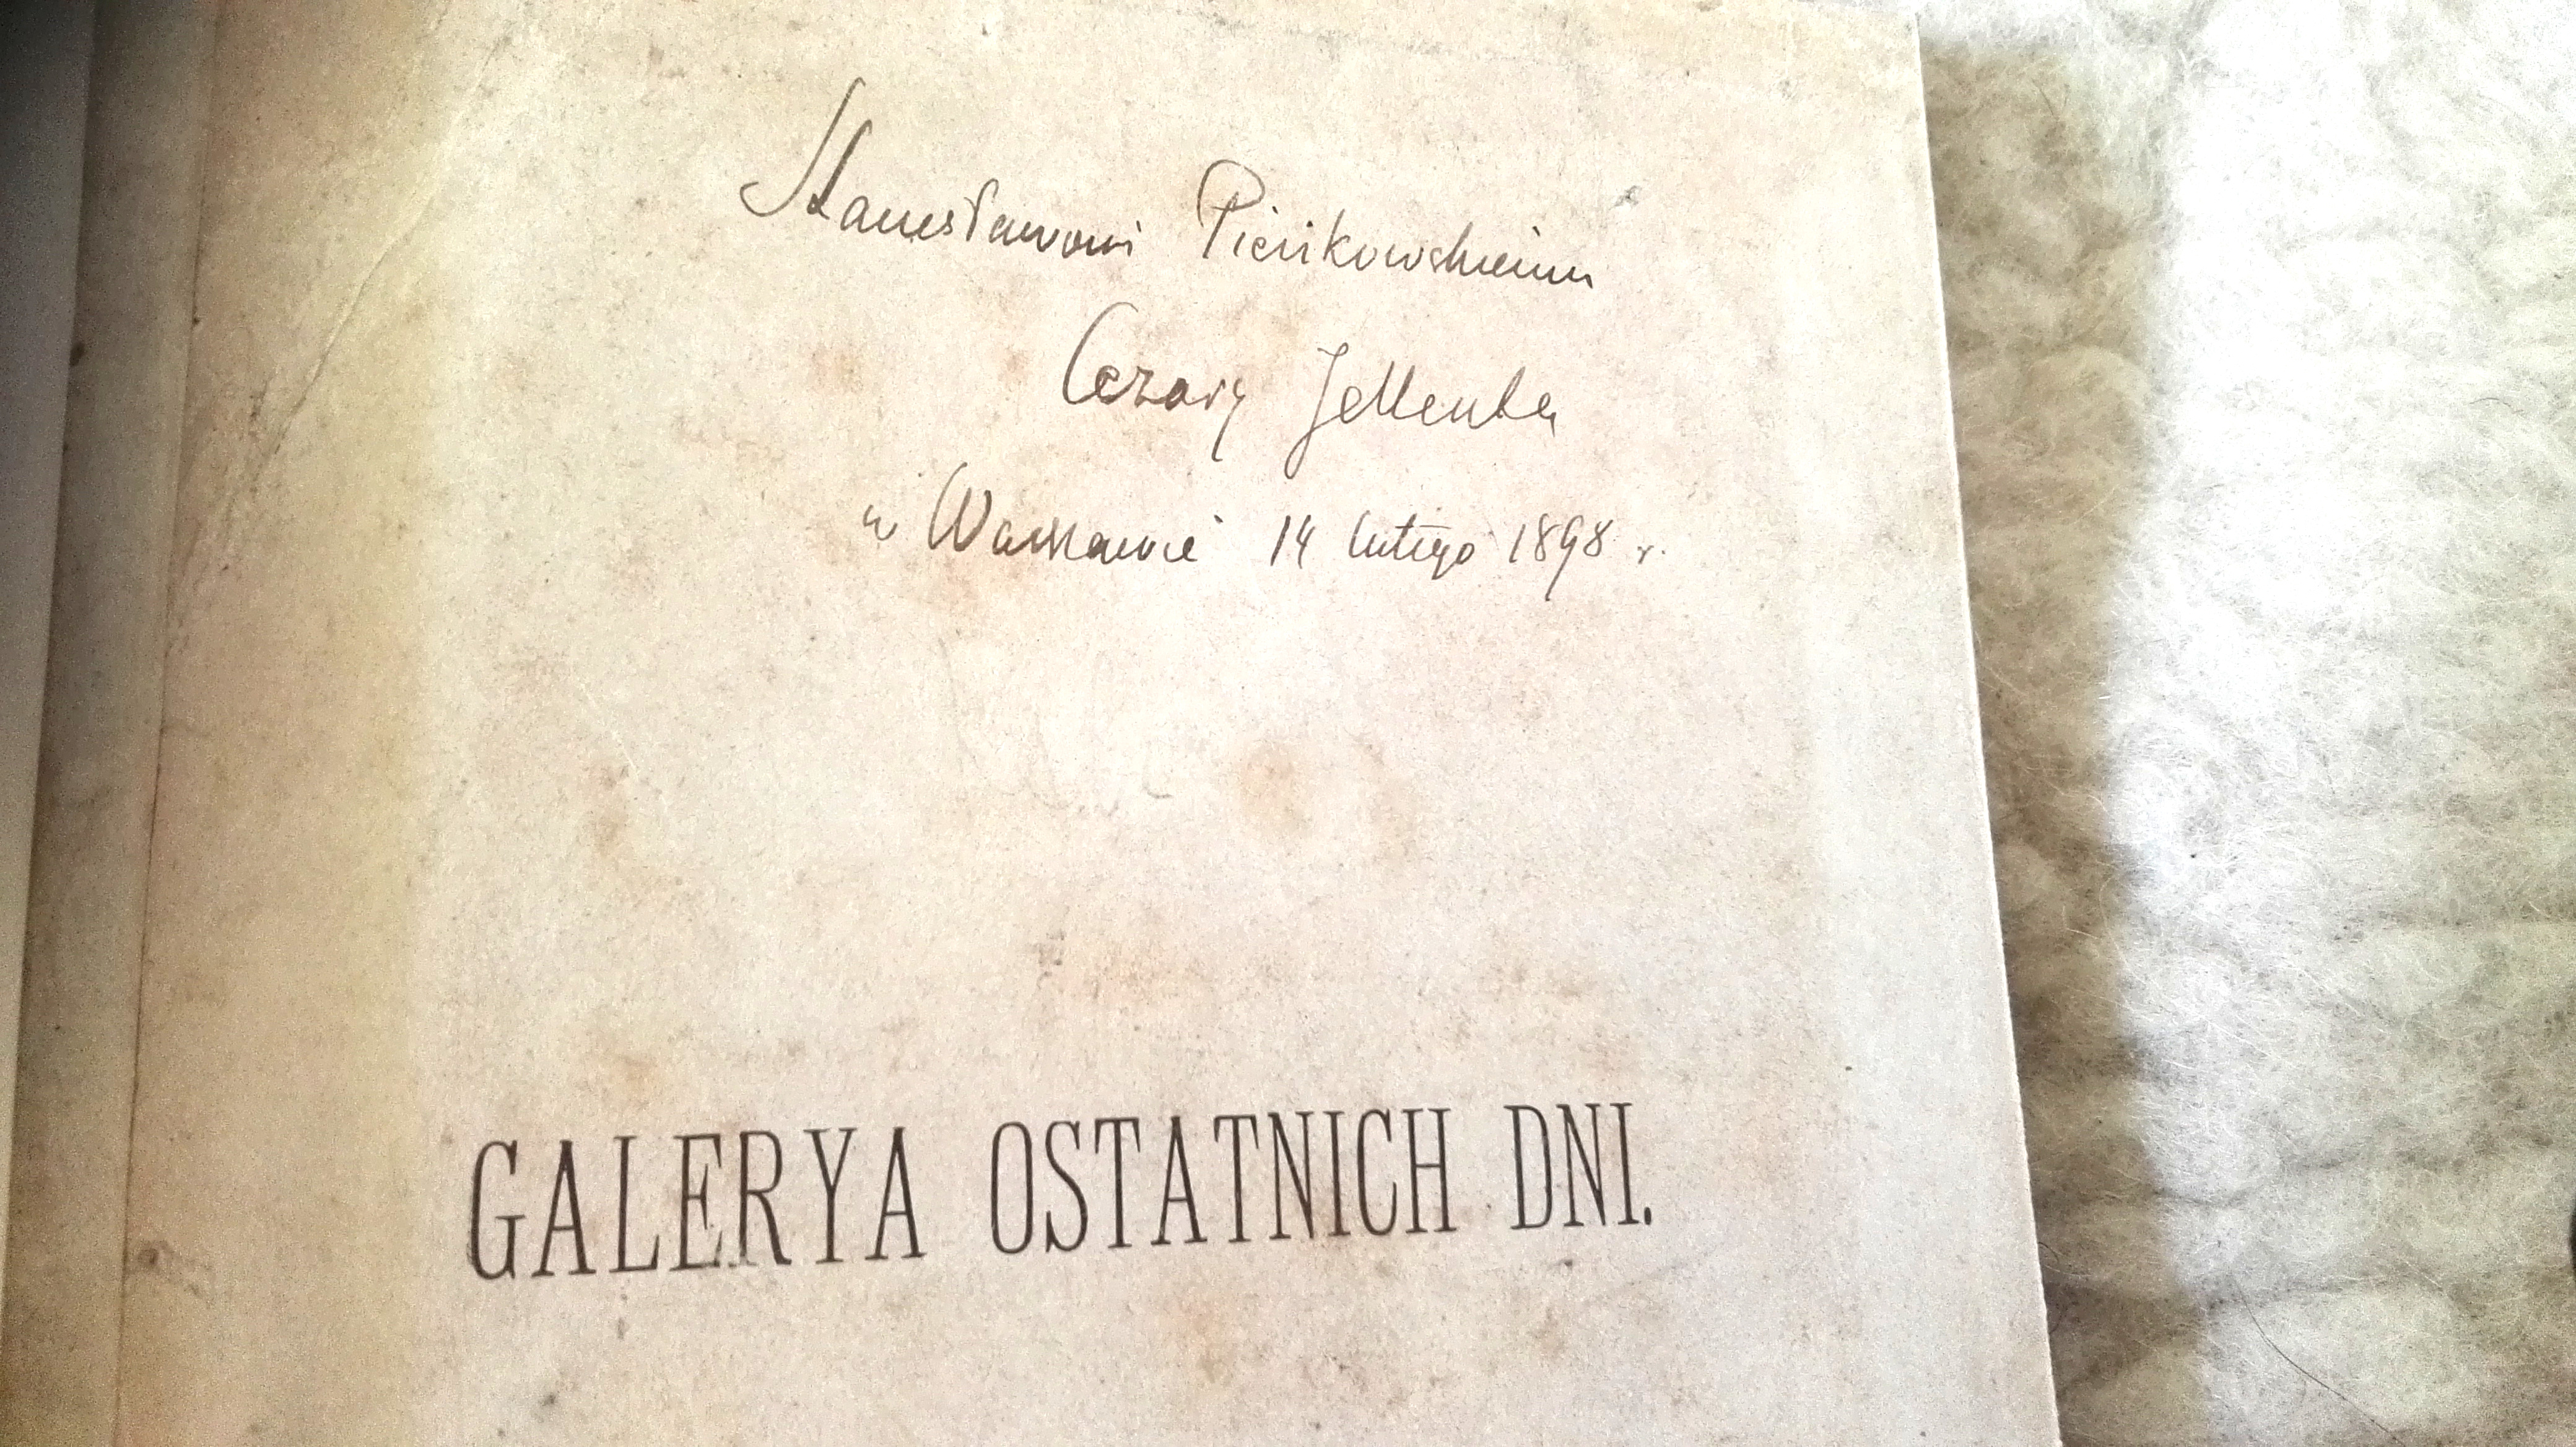 Stanisławowi Pieńkowskiemu
Cezary Jellenta
w Warszawie 14 lutego 1898 r.
GALERYA OSTATNICH DNI.